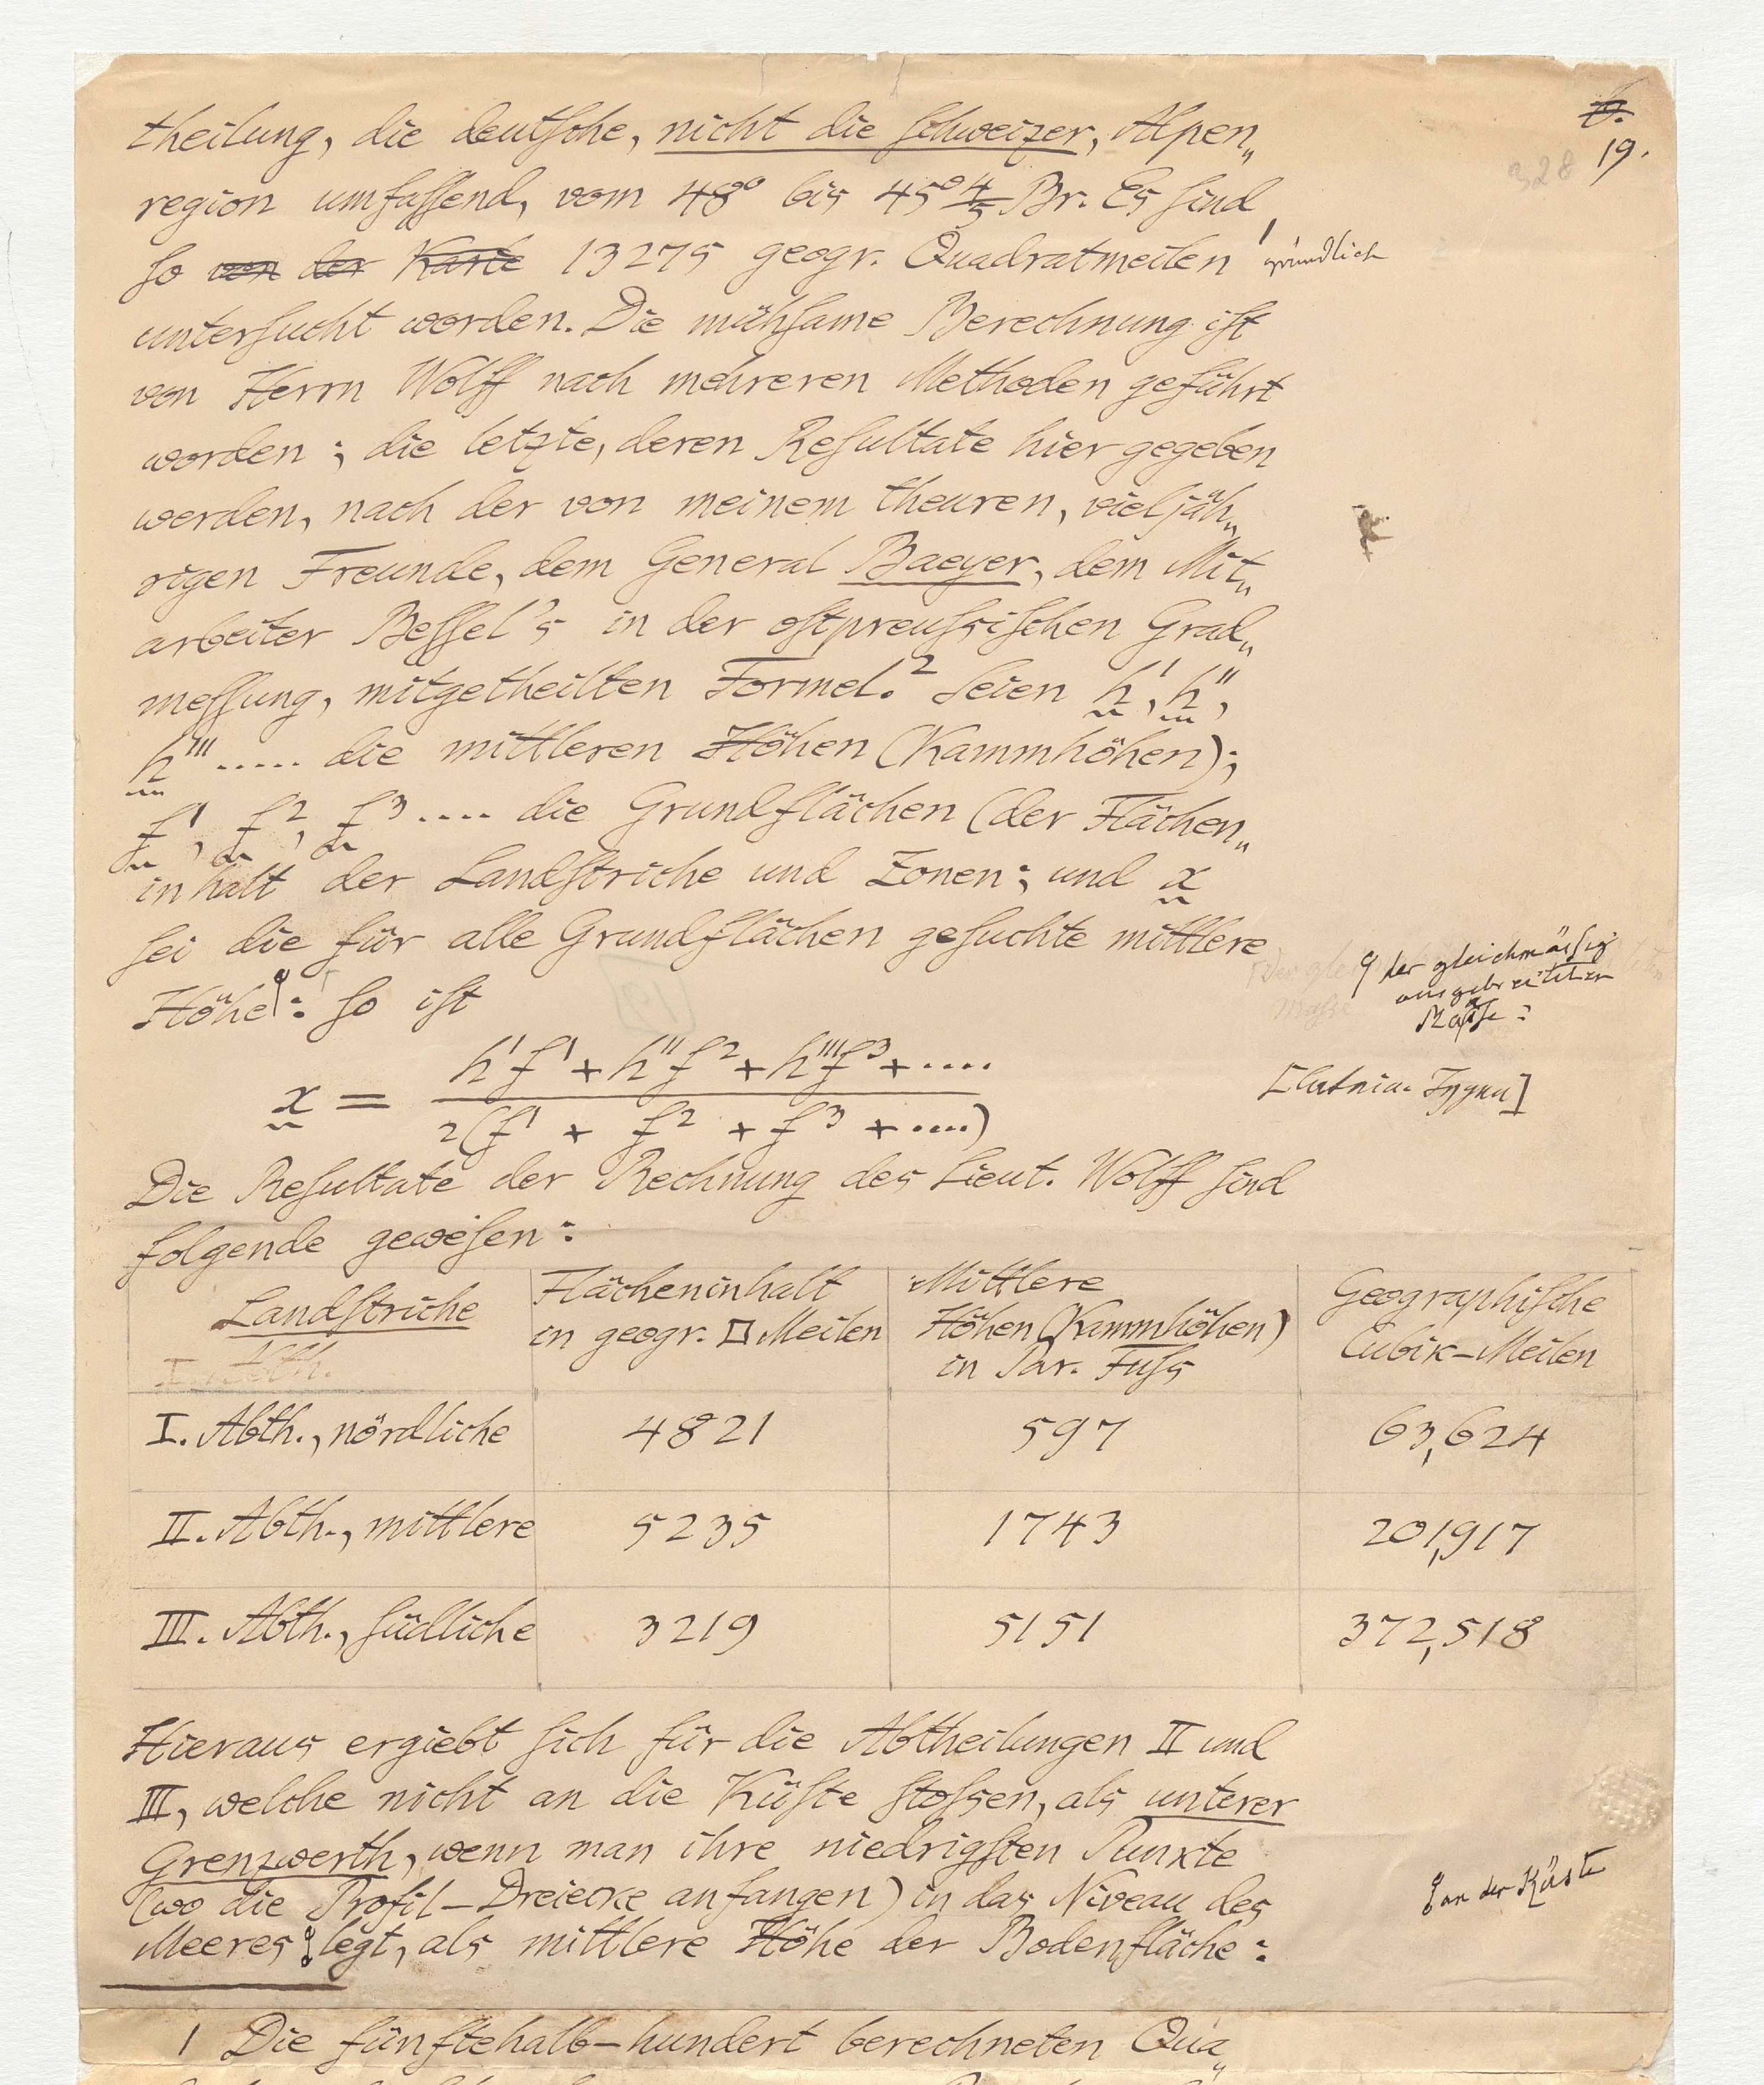 6.
19.
328
theilung, die deutsche, nicht die Schweizer, Alpen„
region umfassend, vom 48° bis 45° 4/5 Br. Es sind
so von der Karte 13275 geogr. Quadratmeilen ¹ gründlich
untersucht worden. Die mühsame Berechnung ist
von Herrn Wolff nach mehreren Methoden geführt
worden; die letzte, deren Resultate hier gegeben
werden, nach der von meinem theuren, vieljäh„
rigen Freunde, dem General Baeyer, dem Mit„
arbeiter Bessel's in der ostpreussischen Grad„
messung, mitgetheilten Formel.² Seien h', h'',
h''' ..... die mittleren Höhen (Kammhöhen);
f¹, f², f³ .... die Grundflächen (der Flächen„
inhalt der Landstriche und Zonen; und x
sei die für alle Grundflächen gesuchte mittlere
Höhe: so ist
der gleichmässig
ausgebreiteten
Masse:
x = h'f¹ + h''f² + h'''f³ + ....
2(f¹ + f² + f³ + ....)
Die Resultate der Rechnung des Lieut. Wolff sind
folgende gewesen:
Landstriche | Flächeninhalt in geogr. □ Meilen | Mittlere Höhen (Kammhöhen) in Par. Fuss | Geographische Cubik-Meilen
I. Abth., nördliche 4821 597 63,624
II. Abth., mittlere 5235 1743 201,917
III. Abth., südliche 3219 5151 372,518
Hieraus ergiebt sich für die Abtheilungen II und
III, welche nicht an die Küste stossen, als unterer
Grenzwerth, wenn man ihre niedrigsten Punkte
(wo die Profil-Dreiecke anfangen) in das Niveau des
Meeres legt, als mittlere Höhe der Bodenfläche:
an der Küste
1 Die fünftehalb-hundert berechneten Qua„